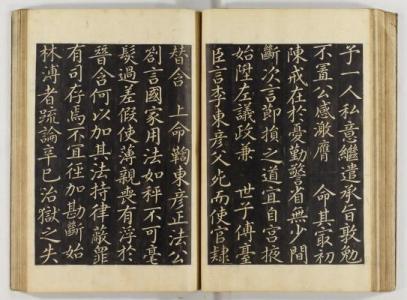 予一人私意繼遣承旨敦勉
不置公感激膺　命其最初
陳戒在於憂勤警省無少間
斷次言節損之道宜自宮掖
始陞左議政兼　世子傅臺
臣言李東彦父死而使官隷
替含　上命鞫東彦正法公
劄言國家用法如秤不可毫
髮過差假使薄親喪有浮於
替含何以加其法持律蔽罪
有司存焉不宜徑加勘斷始
林溥者疏論辛巳治獄之失